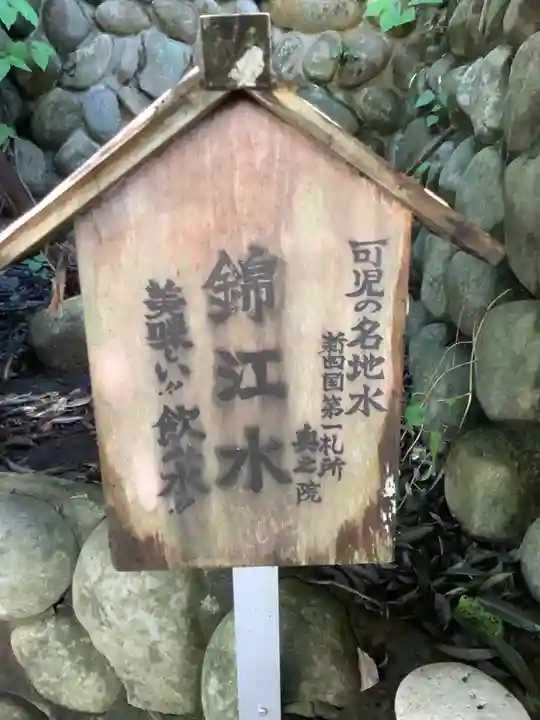 可児の名地水
新四国第一札所
奥之院
錦江水
美味しい!! 飲水!!